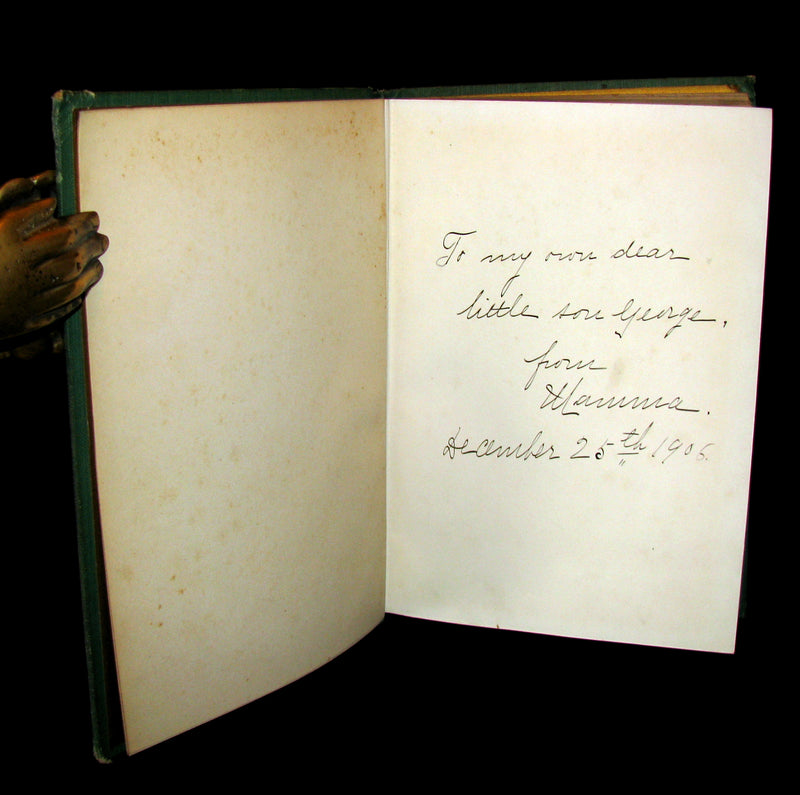 To my own dear
little son George,
from
Mamma.
December 25th 1905.